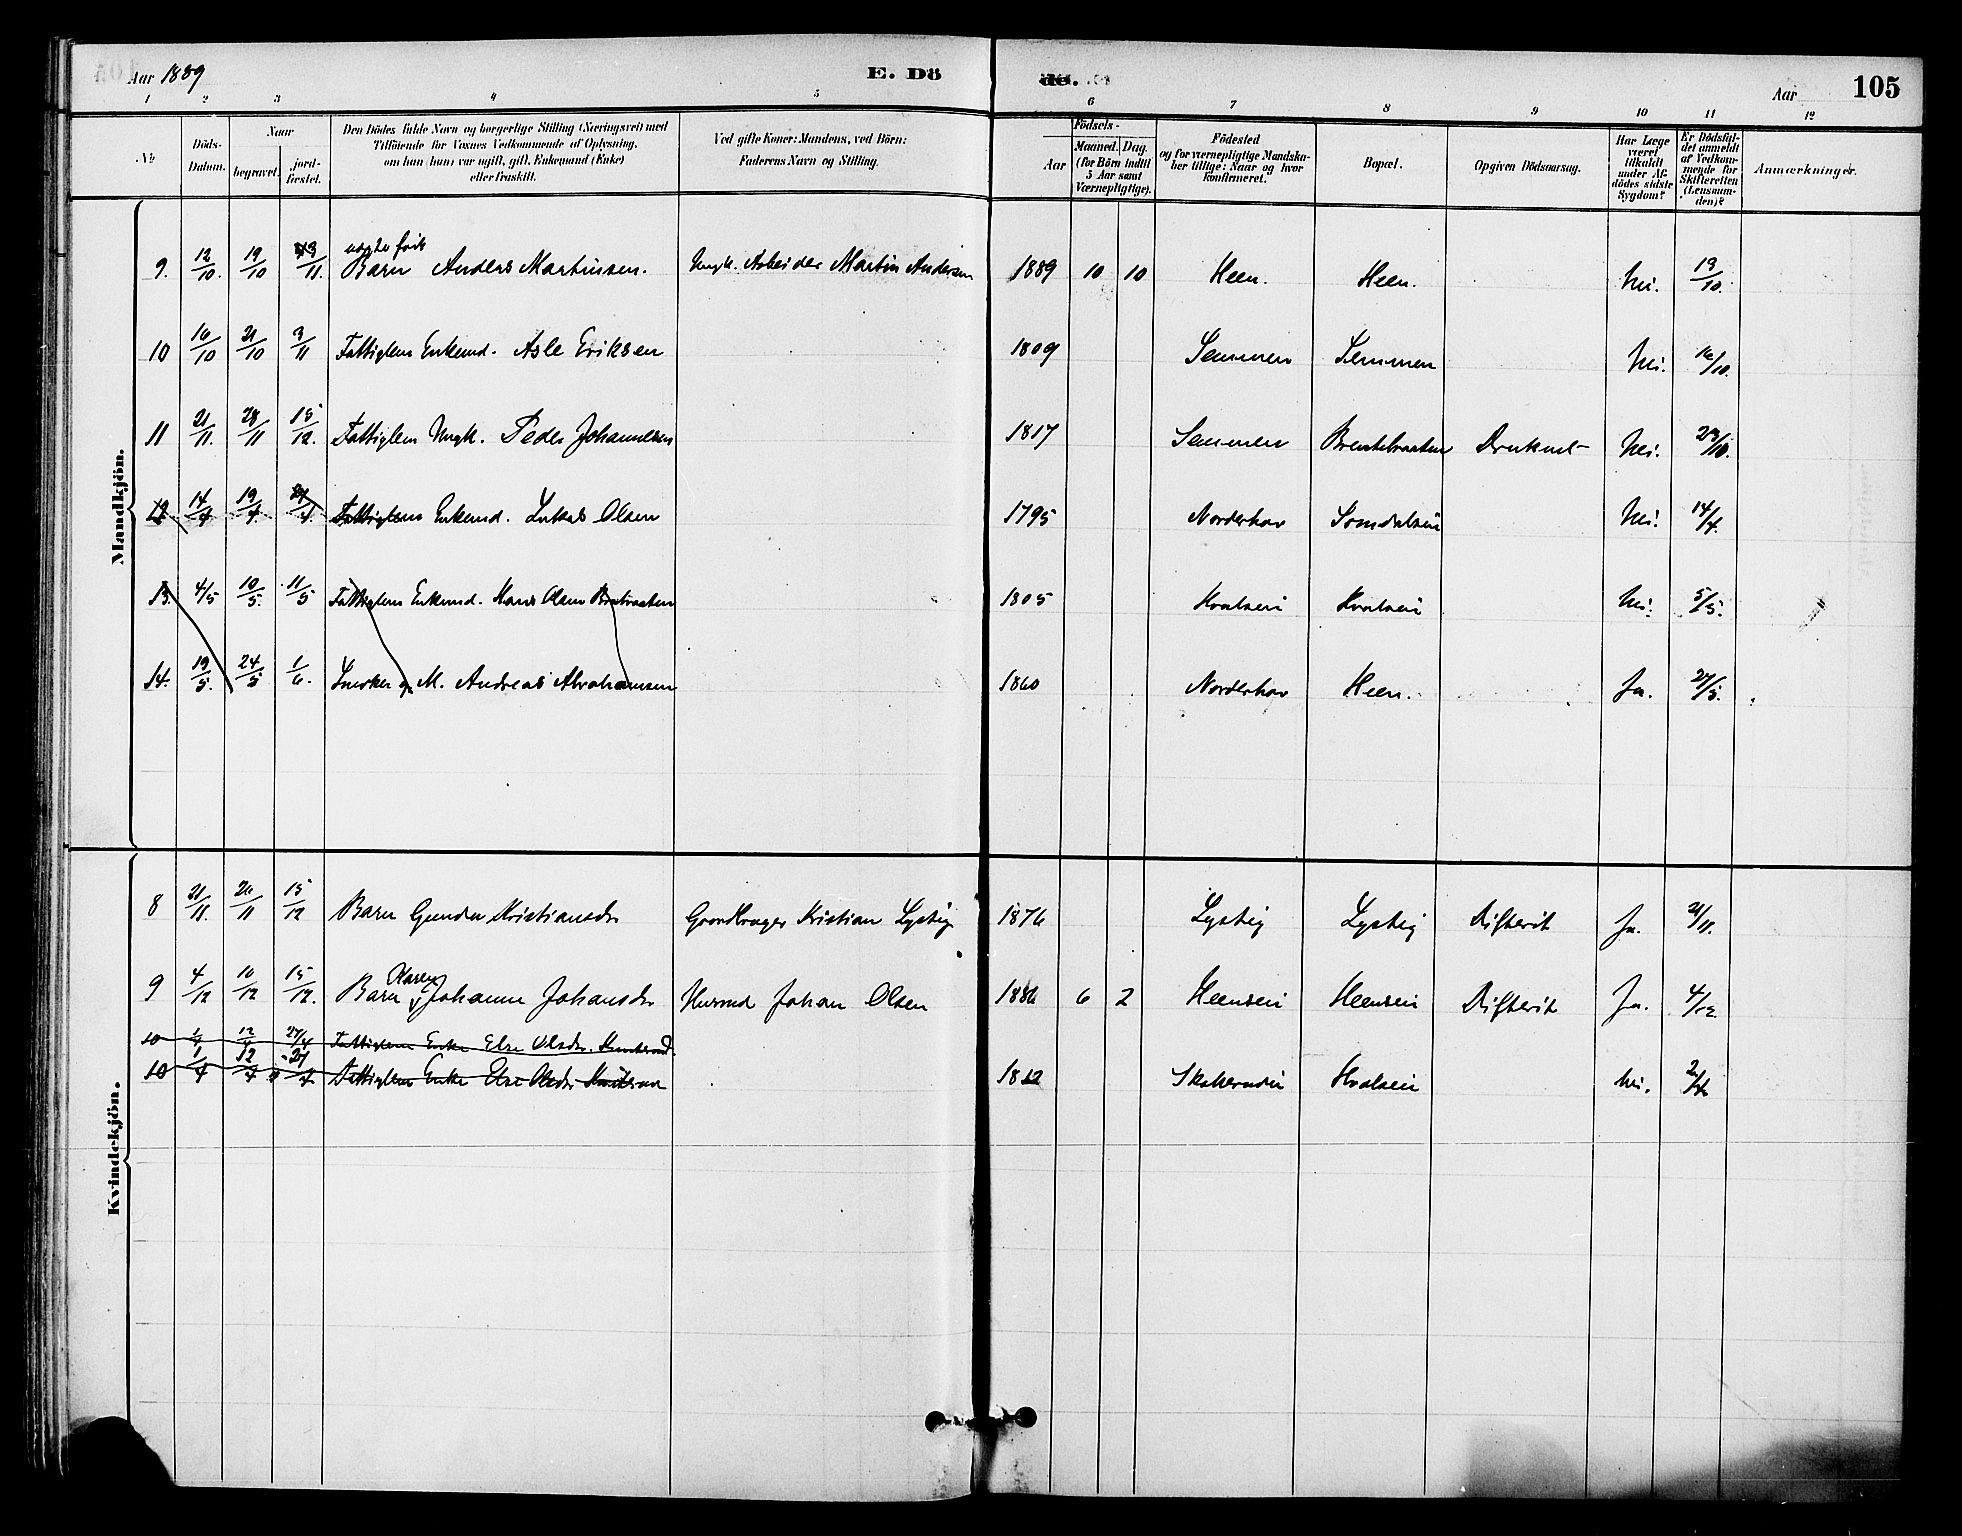 Aar 1889 E. Dö de. Aar 105
1 2 3 4 5 6 7 8 9 10 11 12
No Döds-Datum. Naar begravet. jord-fæstet. Den Dödes fulde Navn og borgerlige Stilling (Næringsvei) med Tilföiende for Voxnes Vedkommende af Oplysning, om han (hun) var ugift, gift, Enkemand (Enke) eller fraskilt. Ved gifte Koner: Mandens, ved Börn: Faderens Navn og Stilling. Födsels- Aar Maaned. Dag. (for Börn indtil 5 Aar samt Værnepligtige). Födested og for værnepligtige Mandska-ber tillige: Naar og hvor konfirmeret. Bopæl. Opgiven Dödsaarsag. Har Læge været tilkaldt under Af-dödes sidste Sygdom? Er Dödsfal-det anmeldt af Vedkom-mende for Skifteretten (Lensman-den)? Anmærkninger.
Mandkjön.
uægte født
9. 12/10. 19/10 3/11. Barn Anders Martinsen. Ungk. Arbeider Martin Andersen 1889 10 10 Heen. Heen. Nei. 13/10.
10 16/10 21/10 3/11 Fattiglem Enkemd. Asle Eriksen 1809 Semmen Semmen Nei. 16/10.
11 21/11. 28/11 15/12. Fattiglem Ungk. Peder Johannesen 1817 Semmen Druknet Nei.
12 14/4 19/4. Fattiglem Enkemd. Lukas Olsen 1795 Norderhov Nei. 14/4.
13. 4/5 10/5. 11/5 Fattiglem Enkemd. Hans Olsen 1805 Hvalseie Hvalseie Nei. 5/5.
14. 19/5. 24/5 1/6. Snedker g. M. Andreas Abrahamsen 1860 Norderhov Heen. Ja. 27/5.
Kvindekjön.
8 21/11 26/11 15/12 Barn Gunda Kristiansdr Gaardbruger Kristian Lystig 1876 Lystig Lystig Difterit Ja. 21/11.
Karen
9 4/12 10/12 15/12. Barn Johanne Johansdr Husmd Johan Olsen 1886 6 2 Heenseie Heenseie Difterit Ja. 4/12.
10 1/4 12/4 27/4 Fattiglem Enke Else Olsdr.
10 1/4 12/4 27/4 Fattiglem Enke Else Olsdr 1812 Hvalseie Nei. 2/4